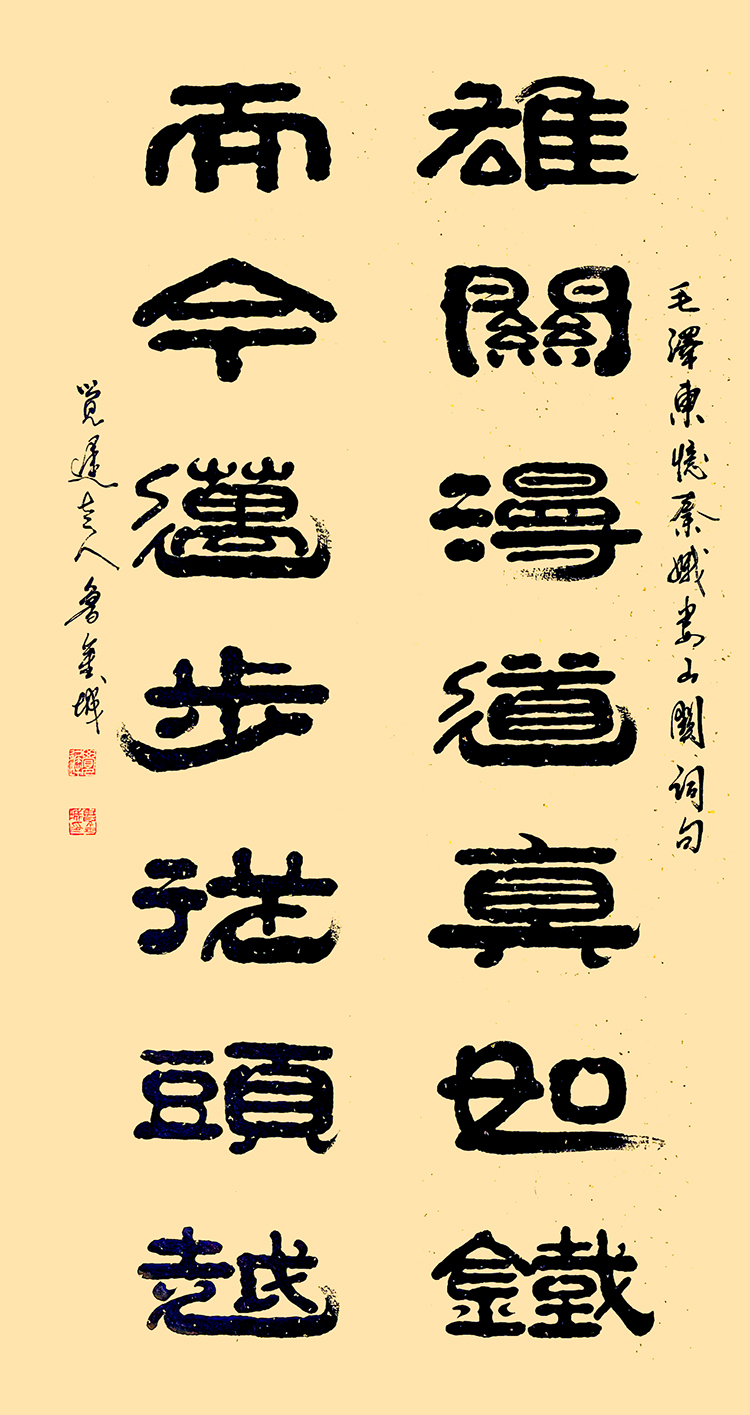 毛澤東憶秦娥婁山關詞句
雄關漫道真如鐵
而今邁步從頭越
人魯